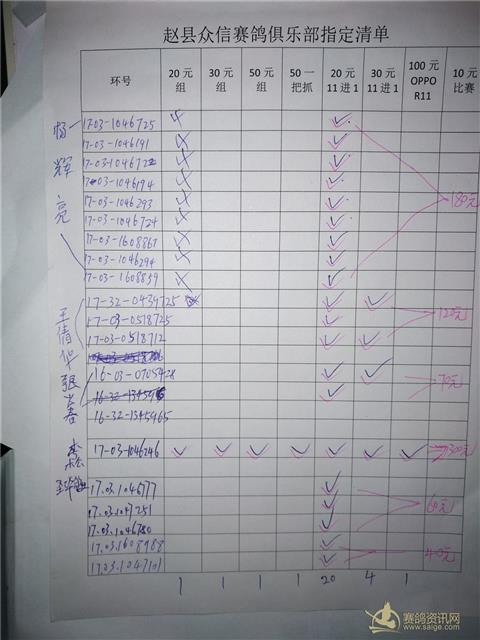 赵县众信赛鸽俱乐部指定清单
环号 20元组 30元组 50元组 50一把抓 20元11进1 30元11进1 100元OPPO R11 10元比赛
杨辉亮
17-03-1046725
17-03-1046191
17-03-1046722
17-03-1046194
17-03-1046293
17-03-1046724
17-03-1608867
17-03-1046294
17-03-1608859
180元
王倩华
17-32-0439725
17-03-0518725
17-03-0518712
120元
张
16-03-0705428
16-32-1345965
70元
17-03-1046246
300元
17.03.1046777
17.03.1047251
17.03.1046780
60元
17.03.1608988
17.03.1047101
40元
1 1 1 1 20 4 1
赛鸽资讯网
www.saige.com